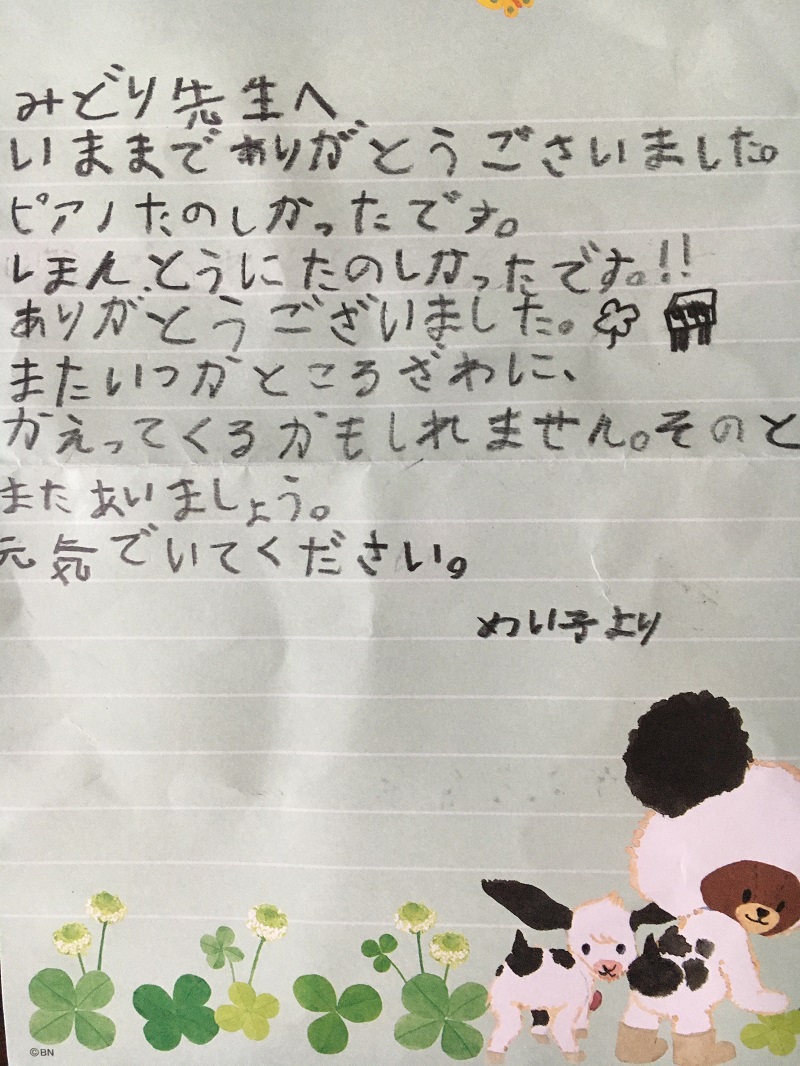 みどり先生へ
いままでありがとうございました。
ピアノたのしかったです。
ほんとうにたのしかったです。!!
ありがとうございました。
またいつかところざわに、
かえってくるかもしれません。そのと
またあいましょう。
元気でいてください。
めい子より
©BN